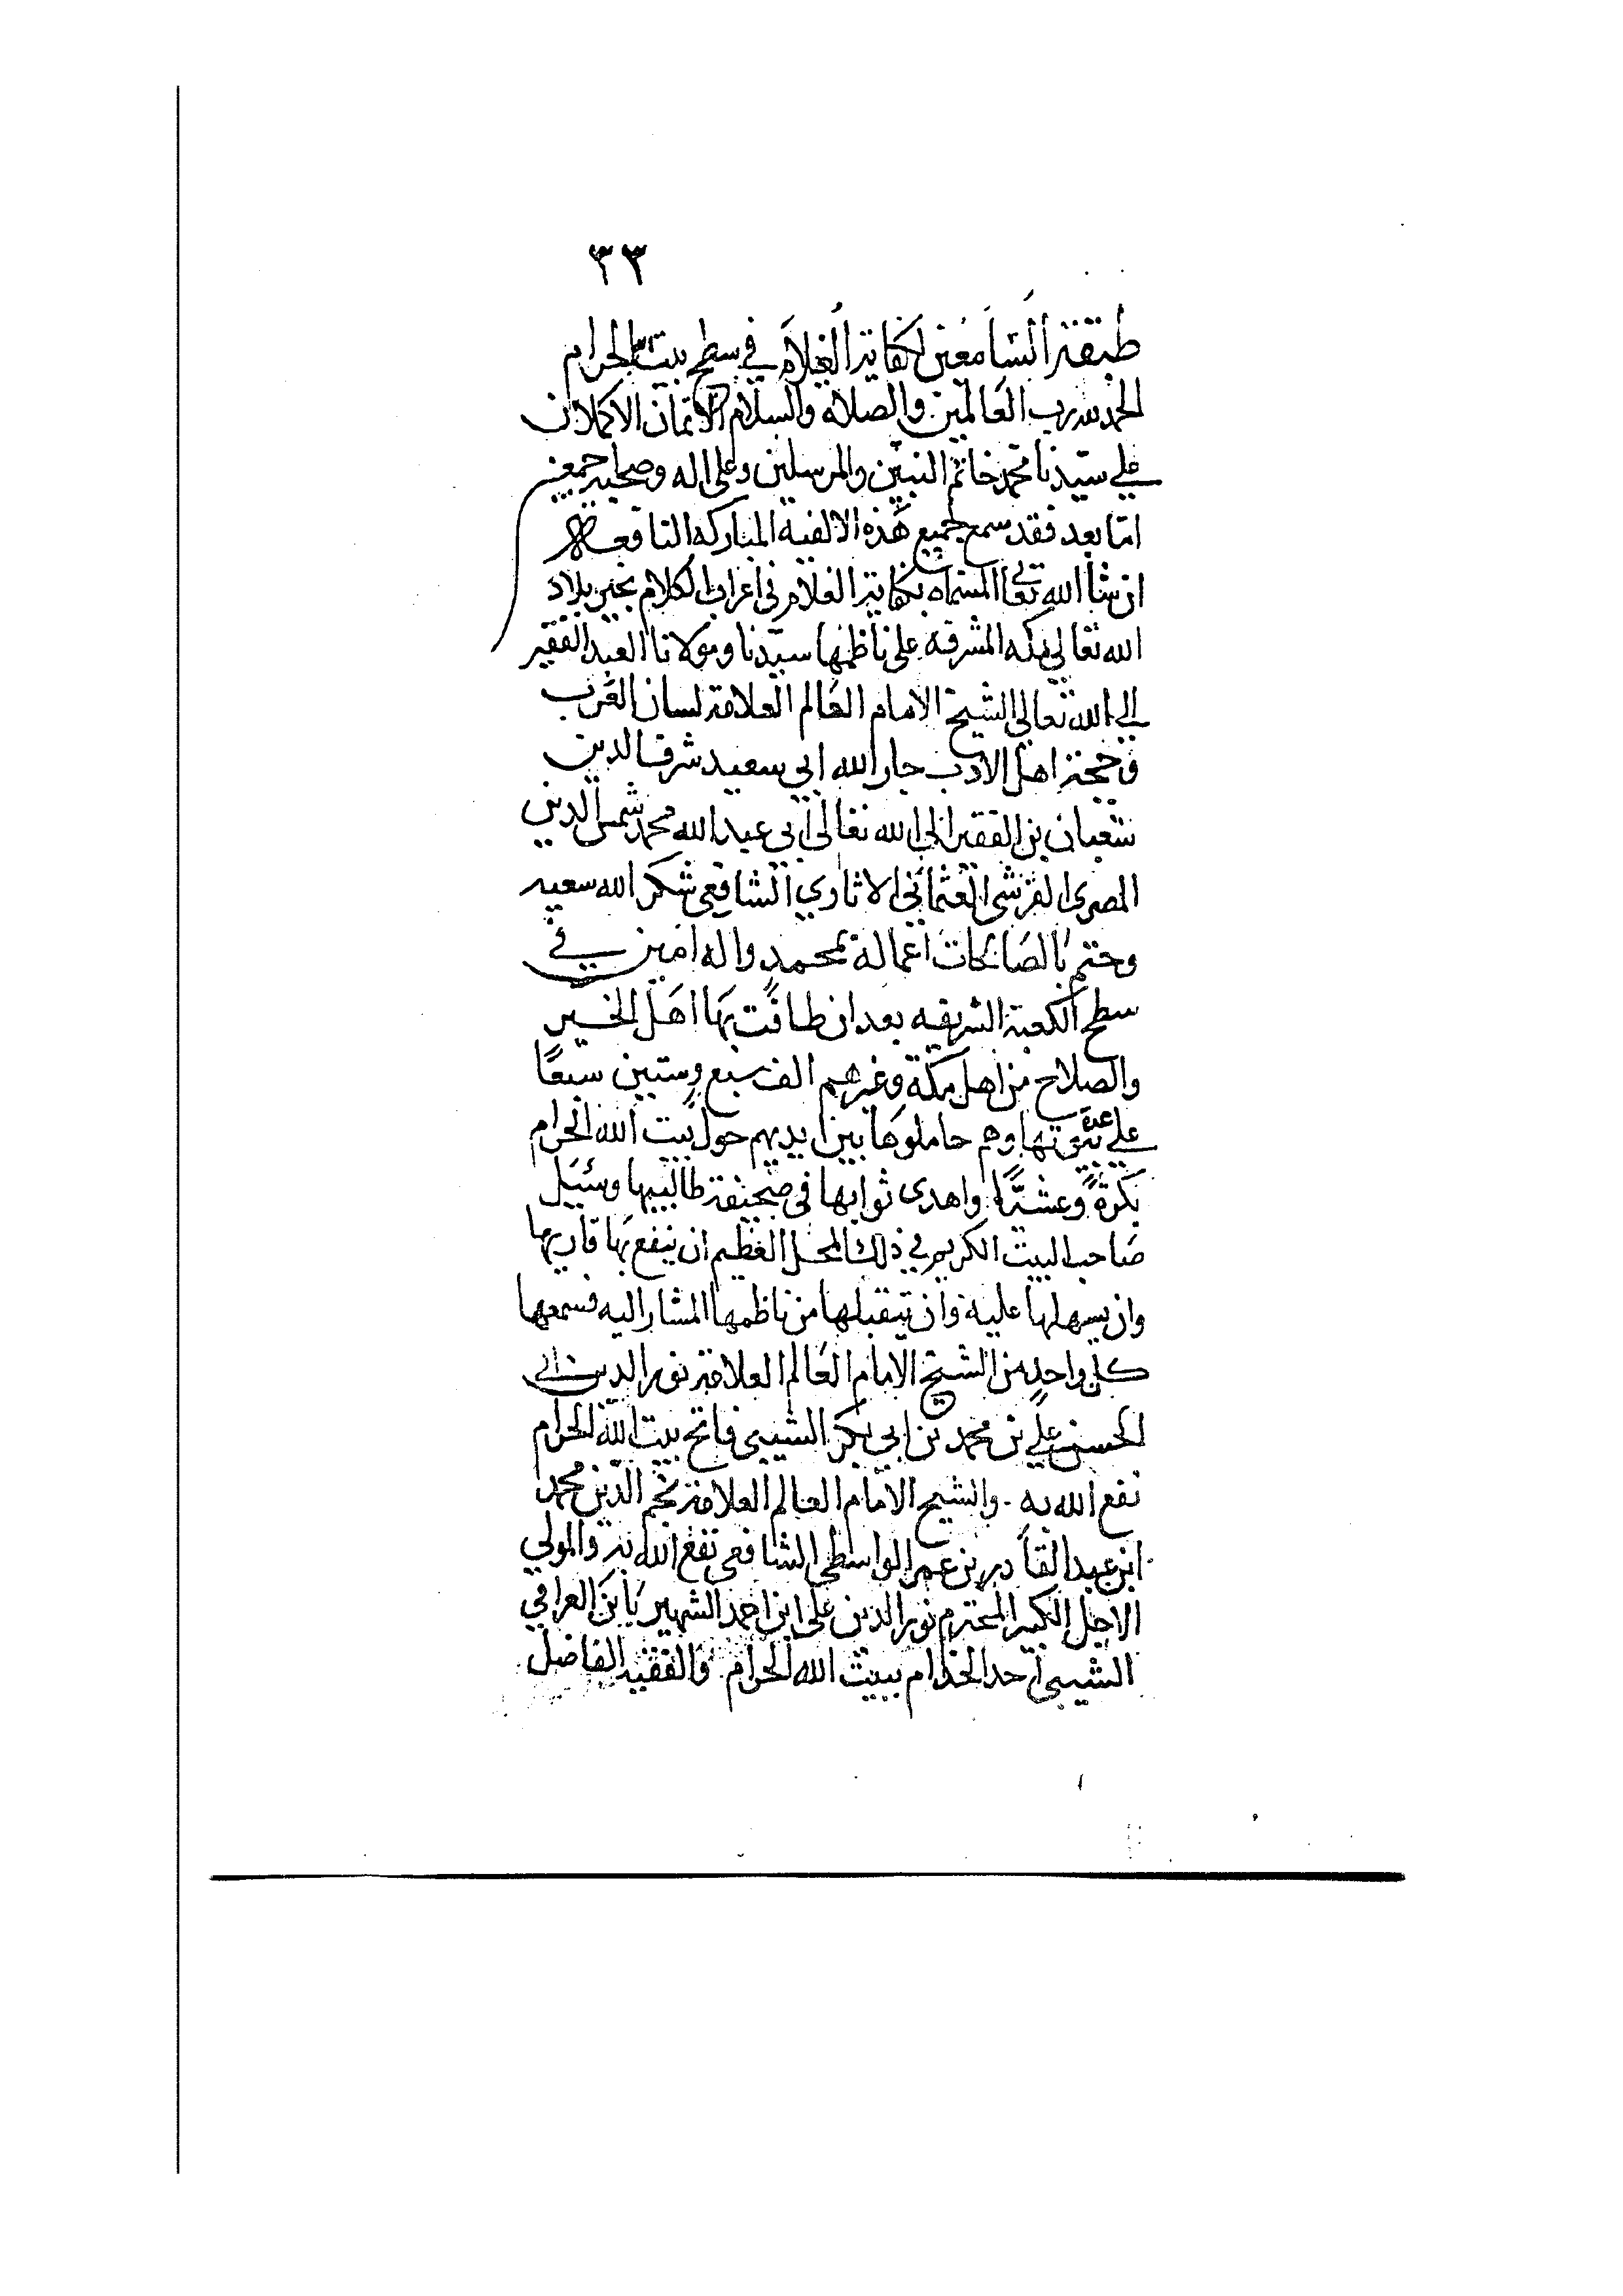 ٣٣
طبقة السامعين لكفاية الغلام في سطح بيت الله الحرام
الحمد لله رب العالمين والصلاة والسلام الاتمان الاكملان
علي سيدنا محمد خاتم النبيين والمرسلين وعلى اله وصحبه اجمعين
امّا بعد فقد سمع جميع هذه الالفية المباركه النافعة
ان شا الله تعالى المسماه بكفاية الغلام في اعراب الكلام بخير بلاد
الله تعالى مكه المشرفه على ناظمها سيّدنا ومولانا العبد الفقير
الي الله تعالى الشيخ الامام العالم العلامة لسان العرب
وحجة اهل الادب جار الله ابي سعيد شرف الدين
شعبان بن الفقير الى الله تعالى ابي عبد الله محمد شمس الدين
المصرى القرشى العثماني الاثاري الشافعي شكر الله سعيه
وختم بالصالحات اعماله بمحمد واله امين في
سطح الكعبة الشريفه بعد ان طافت بها اهل الخير
والصلاح من اهل مكة وغيرهم الف سبع وستين سبعًا
علي عدّة بيوتها وهم حاملوها بين ايديهم حول بيت الله الحرام
بكرةً وعشيًّا واهدى ثوابها في صحيفة طالبيها وسُئِل
صاحب البيت الكريم في ذلك المحل العظيم ان ينفع بها قاريها
وان يسهلها عليه وان يتقبلها من ناظمها المشار اليه فسمعها
كل واحدٍ من الشيخ الامام العالم العلامة نور الدين ابي
الحسن علي بن محمد بن ابي بكر الشيبى فاتح بيت الله الحرام
نفع الله به والشيخ الامام العالم العلامة نجم الدين محمد
ابن عبد القادر بن عمر الواسطى الشافعى نفع الله به والمولي
الاجل الكبير المحترم نور الدين على ابن احمد الشهير بابن العراقي
الشيبى احد الخدام ببيت الله الحرام والفقيه الفاضل